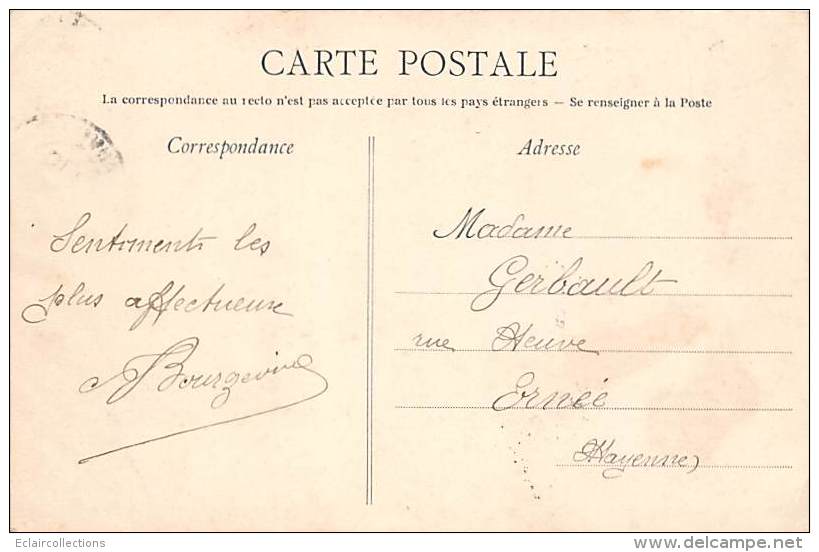 CARTE POSTALE
La correspondance au recto n'est pas acceptée par tous les pays étrangers — Se renseigner à la Poste
Correspondance
Adresse
Sentiments les
plus affectueux
Bourgevin
Madame
Gerbault
rue Neuve
Ernée
(Mayenne)
Eclaircollections
delcampe.net